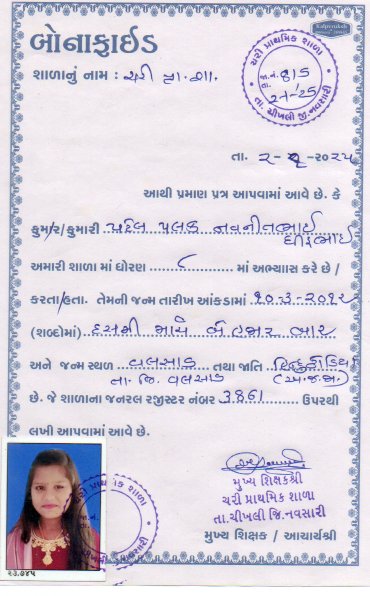 બોનાફાઈડ
શાળાનું નામ : ચરી પ્રા. શા.
ચરી પ્રાથમિક શાળા
જા.નં. 815
તા. ચીખલી જી. નવસારી
તા. ૨-૨૦૨૫
આથી પ્રમાણ પત્ર આપવામાં આવે છે. કે
કુમા/ર/કુમારી પટેલ પલક નવનીતભાઈ
અમારી શાળા માં ધોરણ ૮ માં અભ્યાસ કરે છે /
કરતા/હતા. તેમની જન્મ તારીખ આંકડામાં ૧૦-૩-૨૦૧૨
(શબ્દોમાં) દસમી માર્ચ બે હજાર બાર
અને જન્મ સ્થળ વલસાડ તથા જાતિ હિન્દુ ઢોડિયા
તા. જિ. વલસાડ (અ.જ.જા)
છે. જે શાળાના જનરલ રજીસ્ટર નંબર 3861 ઉપરથી
લખી આપવામાં આવે છે.
મુખ્ય શિક્ષકશ્રી
ચરી પ્રાથમિક શાળા
તા.ચીખલી જિ.નવસારી
મુખ્ય શિક્ષક / આચાર્યશ્રી
૨૩.૭૪૫